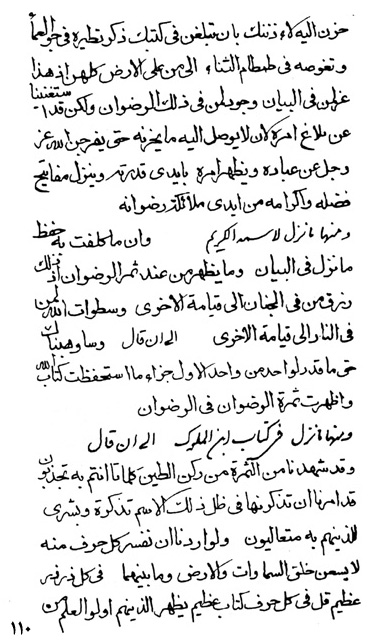 حزن اليه لاذننك بان تبلغن فى كتبك ذكر نظيره فى حو العما
و تغوصه فى طمطام الثناء الى من على الارض كلهم اذ هذا
عز لمن فى البيان وجود لمن فى ذلك الرضوان ولكن قد استغنينا
عن بلاغ امره كان لا يوصل اليه ما يحزنه حتى يفرجن الله عز
وجل عن عباده و يظهر امره بايدى قدرته و ينزل مفاتيح
فضله و اكرامه من ايدى ملائكة رضوانه
و منها ما نزل لاسمه الكريم وان ما كلفت به حفظ
ما نزل فى البيان و ما يظهر من عند ثمر الرضوان اذ ذلك
رزق من فى الجنان الى قيامة الاخرى وسطوات الله لمن
فى النار الى قيامة الاخرى الى ان قال و ساوهبنك
حتى ما قدر لواحد من واحد الاول جزاء ما استحفظت كتاب الله
و اظهرت ثمرة الرضوان فى الرضوان
و منها ما نزل فى كتاب ابن الملوك الى ان قال
و قد شهدنا من الثمرة من ركن الطين كلما انتم به تجذبون
قد امرنا ان تذكرنها فى ظل ذلك الاسم تذكرة و بشرى
للذينهم به متعاليون ولو اردنا ان نفسر كل حرف منه
لا يسعن خلق السماوات والارض و ما بينهما فى كل ذر نبر
عظيم قل فى كل حرف كتاب عظيم يظهر الذينهم اولو العلم من
١١٠